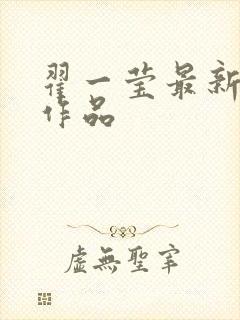 翟一莹最新
作品
虚無聖宰